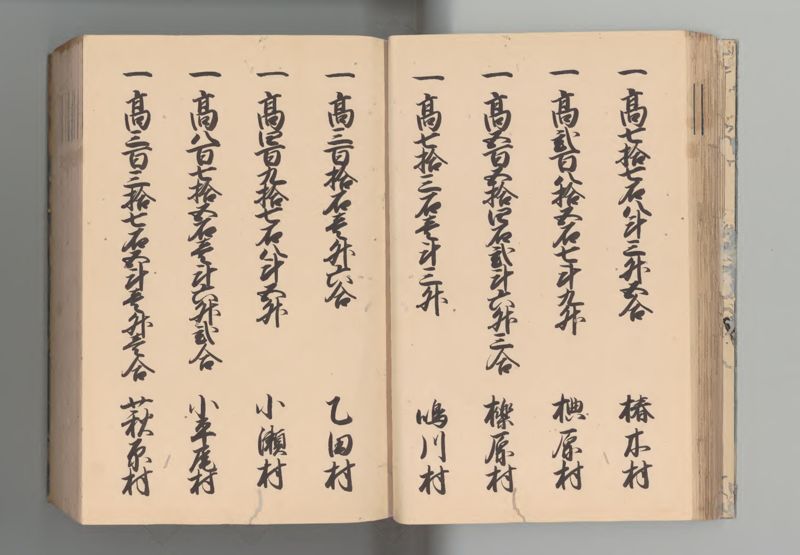 一 高七拾七石八斗三升五合 椿木村
一 高弐百八拾五石七斗九升 椣原村
一 高五百五拾四石弐斗六升三合 櫟原村
一 高七拾三石壱斗三升 鳴川村
一 高三百拾石壱升六合 乙田村
一 高四百九拾七石八斗五升 小瀬村
一 高八百七拾五石壱斗六升弐合 小平尾村
一 高三百三拾七石五斗壱升壱合 萩原村